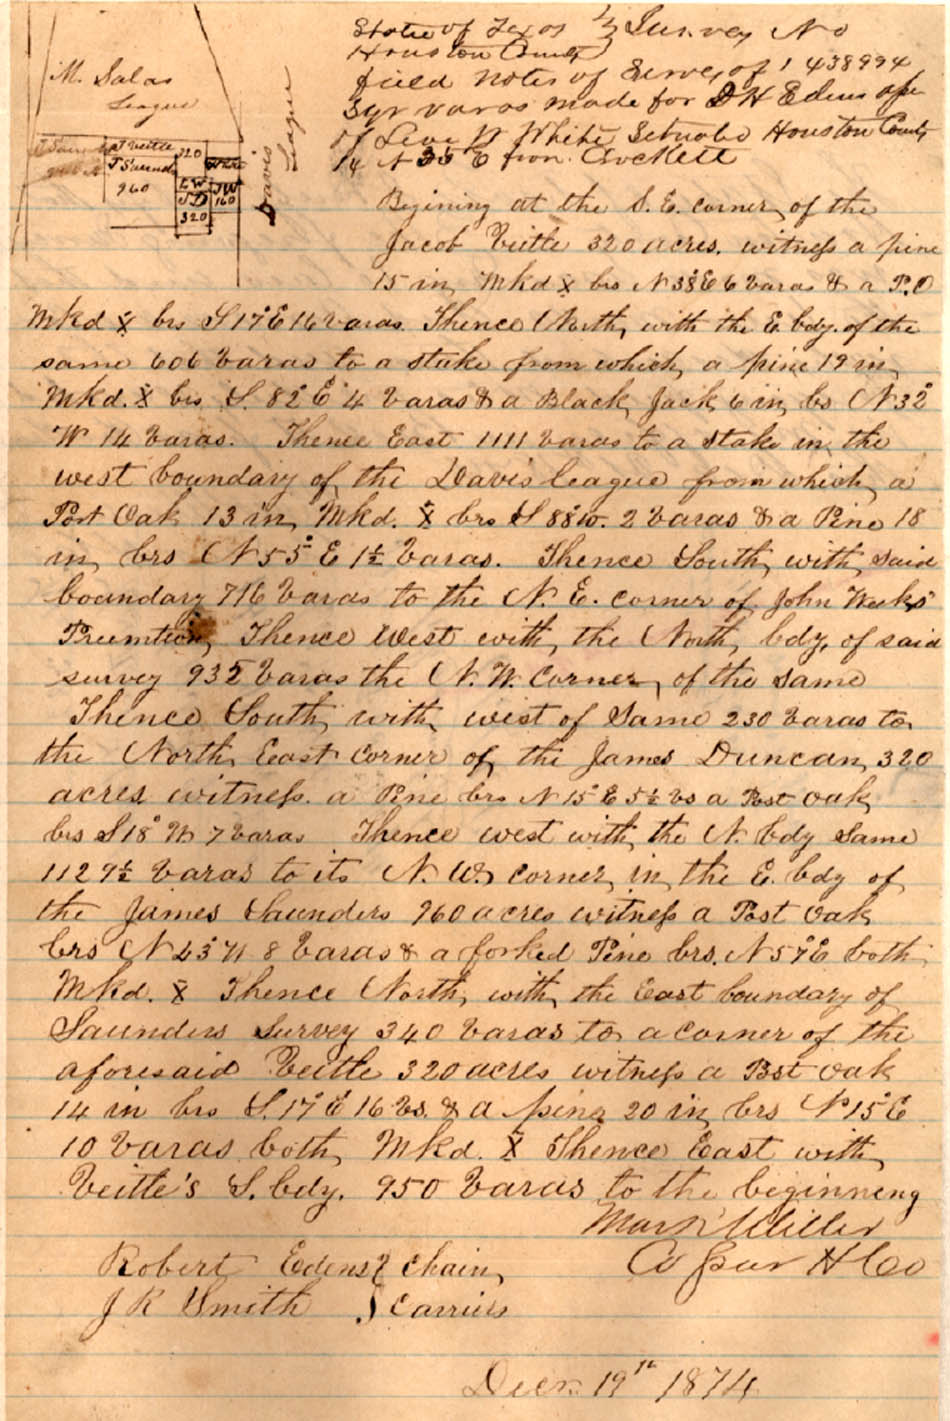 M. Salas
League
T Veitle
J Saunds
960
320
White
L W
J D
320
J W
160
Davis
League
State of Texas } Survey No
Houston County }
Field notes of Survey of 1438994
Sqr varas made for D H Edens
of Levi White Situate Houston County
14 N 35 E from Crockett
Begining at the S. E. corner of the
Jacob Veitle 320 acres. witness a pine
15 in Mkd X brs N 38° E 6 varas & a P.O
Mkd X brs S 17° E 16 varas. Thence North, with the E. bdy. of the
same 606 varas to a stake from which a pine 19 in
Mkd. X brs S. 82° E 4 varas & a Black Jack 6 in bs N 32°
W 14 varas. Thence East 1111 varas to a stake in the
west boundary of the Davis league from which a
Post Oak 13 in Mkd. X brs S 88° W. 2 varas & a Pine 18
in brs N 55° E 1½ varas. Thence South, with said
boundary 716 varas to the N. E. corner of John Weeks'
Preemtion, Thence West with the North bdy, of said
survey 935 varas the N. W. Corner of the same
Thence South with west of same 230 varas to
the North East Corner of the James Duncan 320
acres witness. a Pine brs N 15° E 5½ vs a Post oak
brs S 18° W 7 varas Thence west with the N. bdy same
1129½ varas to its N. W. corner in the E. bdy of
the James Saunders 960 acres witness a Post oak
brs N 23° W 8 varas & a forked Pine brs. N 57° E both
Mkd. X Thence North, with the East boundary of
Saunders Survey 340 varas to a corner of the
aforesaid Veitle 320 acres witness a Post oak
14 in brs S. 17° E 16 vs. & a pine 20 in brs N 15° E
10 varas both Mkd. X Thence East with
Veitle's S. bdy. 950 varas to the beginneng
Mark Miller
Co Sur H Co
Robert Edens } Chain
J R Smith } Carriers
Decr. 19th 1874